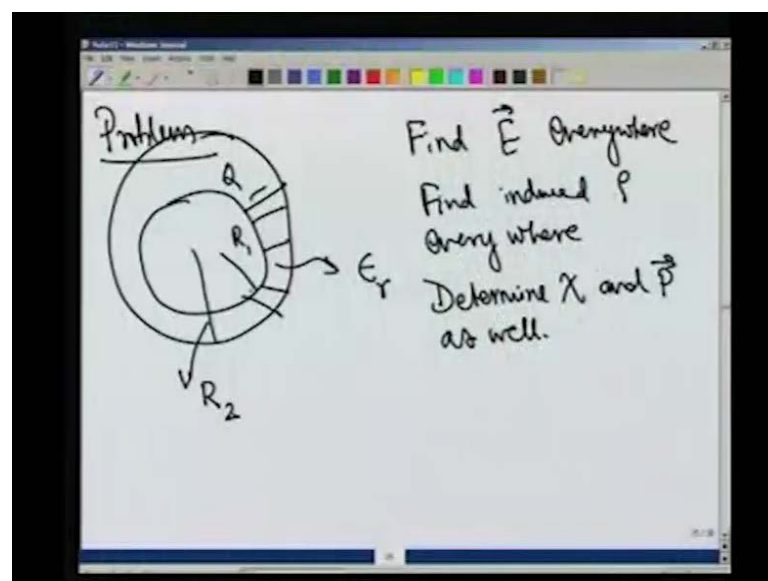 Problem
Find E⃗ Everywhere
Q
Find induced ρ
R₁
every where
ϵᵣ
Determine χ and P⃗
as well.
R₂